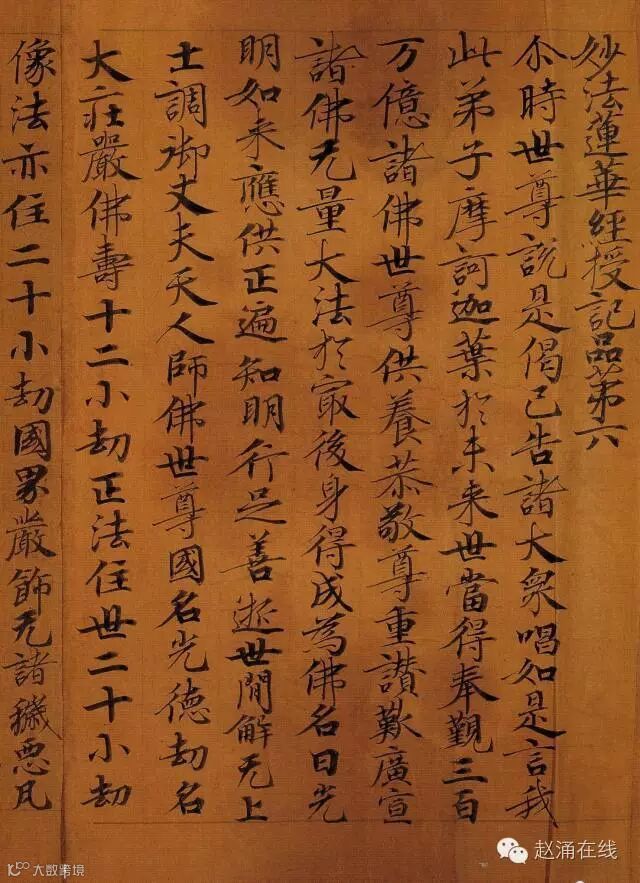 妙法蓮華經授記品第六
尒時世尊說是偈已告諸大衆唱如是言我
此弟子摩訶迦葉於未来世當得奉覲三百
万億諸佛世尊供養恭敬尊重讃歎廣宣
諸佛无量大法於冣後身得成為佛名曰光
明如来應供正遍知明行足善逝世間解无上
士調御丈夫天人師佛世尊國名光徳劫名
大莊嚴佛壽十二小劫正法住世二十小劫
像法亦住二十小劫國界嚴飾无諸穢惡瓦
赵涌在线
大数跨境